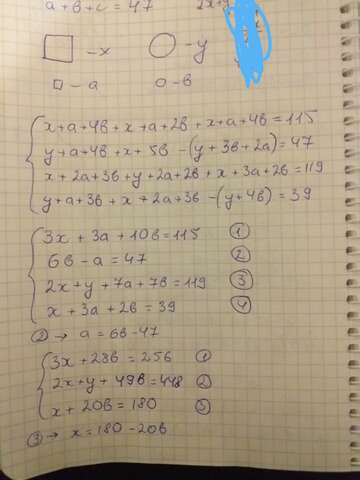 a+b+c = 47
□ – x ○ – y
□ – a ○ – b
x+a+4b+x+a+2b+x+a+4b=115
y+a+4b+x+5b-(y+3b+2a)=47
x+2a+3b+y+2a+2b+x+3a+2b=119
y+a+3b+x+2a+3b-(y+4b)=39
3x+3a+10b=115 ①
6b-a=47 ②
2x+y+7a+7b=119 ③
x+3a+2b=39 ④
② → a=6b-47
3x+28b=256 ①
2x+y+49b=448 ②
x+20b=180 ③
③ → x=180-20b